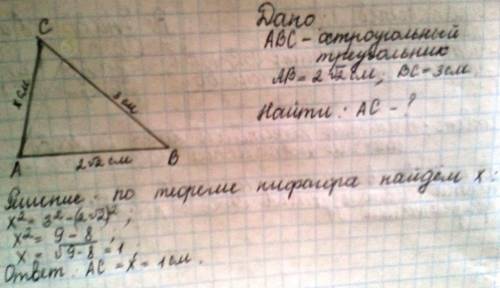 C
x см
3 см
A
2√2 см
B
Дано
ABC - остроугольный
треугольник
AB = 2√2 см; BC = 3 см
Найти: AC - ?
Решение: по теореме пифагора найдём x:
x² = 3² - (2√2)²;
x² = 9 - 8;
x = √9-8 = 1.
Ответ: AC = x = 1 см.